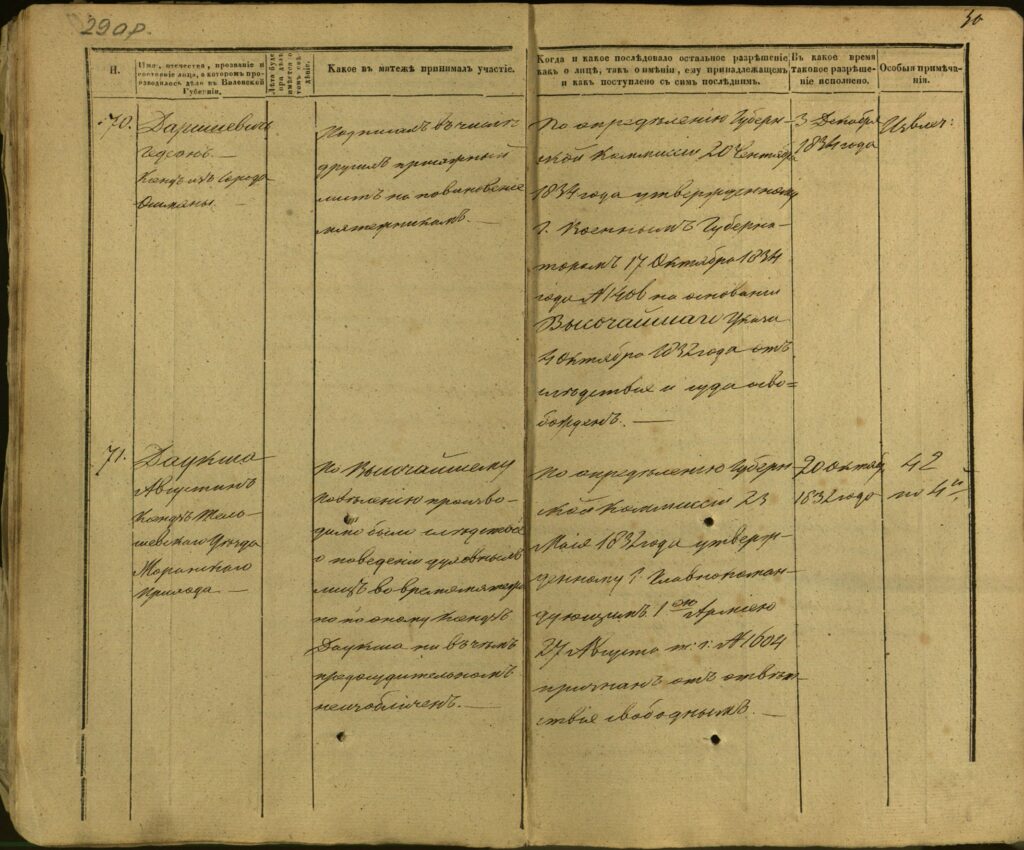 29 ор.
30
Н.
Имя, отечества, прозвание и состояние лица, о котором производилось дѣло въ Виленской Губерніи.
Какое въ матежѣ принималъ участіе.
Когда и какое послѣдовало остальное разрѣшеніе
какъ о лицѣ, такъ о имѣніи, ему принадлежащемъ
и какъ поступлено съ симъ послѣднимъ.
Въ какое время
таковое разрѣше-
ніе исполнено.
Особыя примѣча-
нія.
70.
Ксендзъ изъ города
Ошмяны.
Подписалъ въ числѣ
другихъ присяжный
листъ на повиновеніе
мятежникамъ. —
По опредѣленію Губерн-
ской Коммисіи 20 Сентября
1834 года утвержденному
Г. Военнымъ Губерна-
торомъ 17 Октября 1834
года № 1406 на основаніи
Высочайшаго Указа
4 Октября 1832 года отъ
слѣдствія и суда осво-
божденъ. —
3 Декабря
1834 года
Извлеч:
71.
Даукша
Августинъ
Ксендзъ Тель-
шевскаго Уѣзда
Прихода —
По Высочайшему
повелѣнію произво-
димо было слѣдствіе
о поведеніи духовныхъ
лицъ во время мятежа
но по оному Ксендзъ
Даукша ни въ чемъ
предосудительномъ
неизобличенъ. —
По опредѣленію Губерн-
ской Коммисіи 23
Маія 1832 года утверж-
денному Г. Главнокоман-
дующимъ 1ою Арміею
27 Августа т. г. № 1604
признанъ отъ отвѣт-
ствія свободнымъ. —
20 Октяб.
1832 года
42
по 4й.